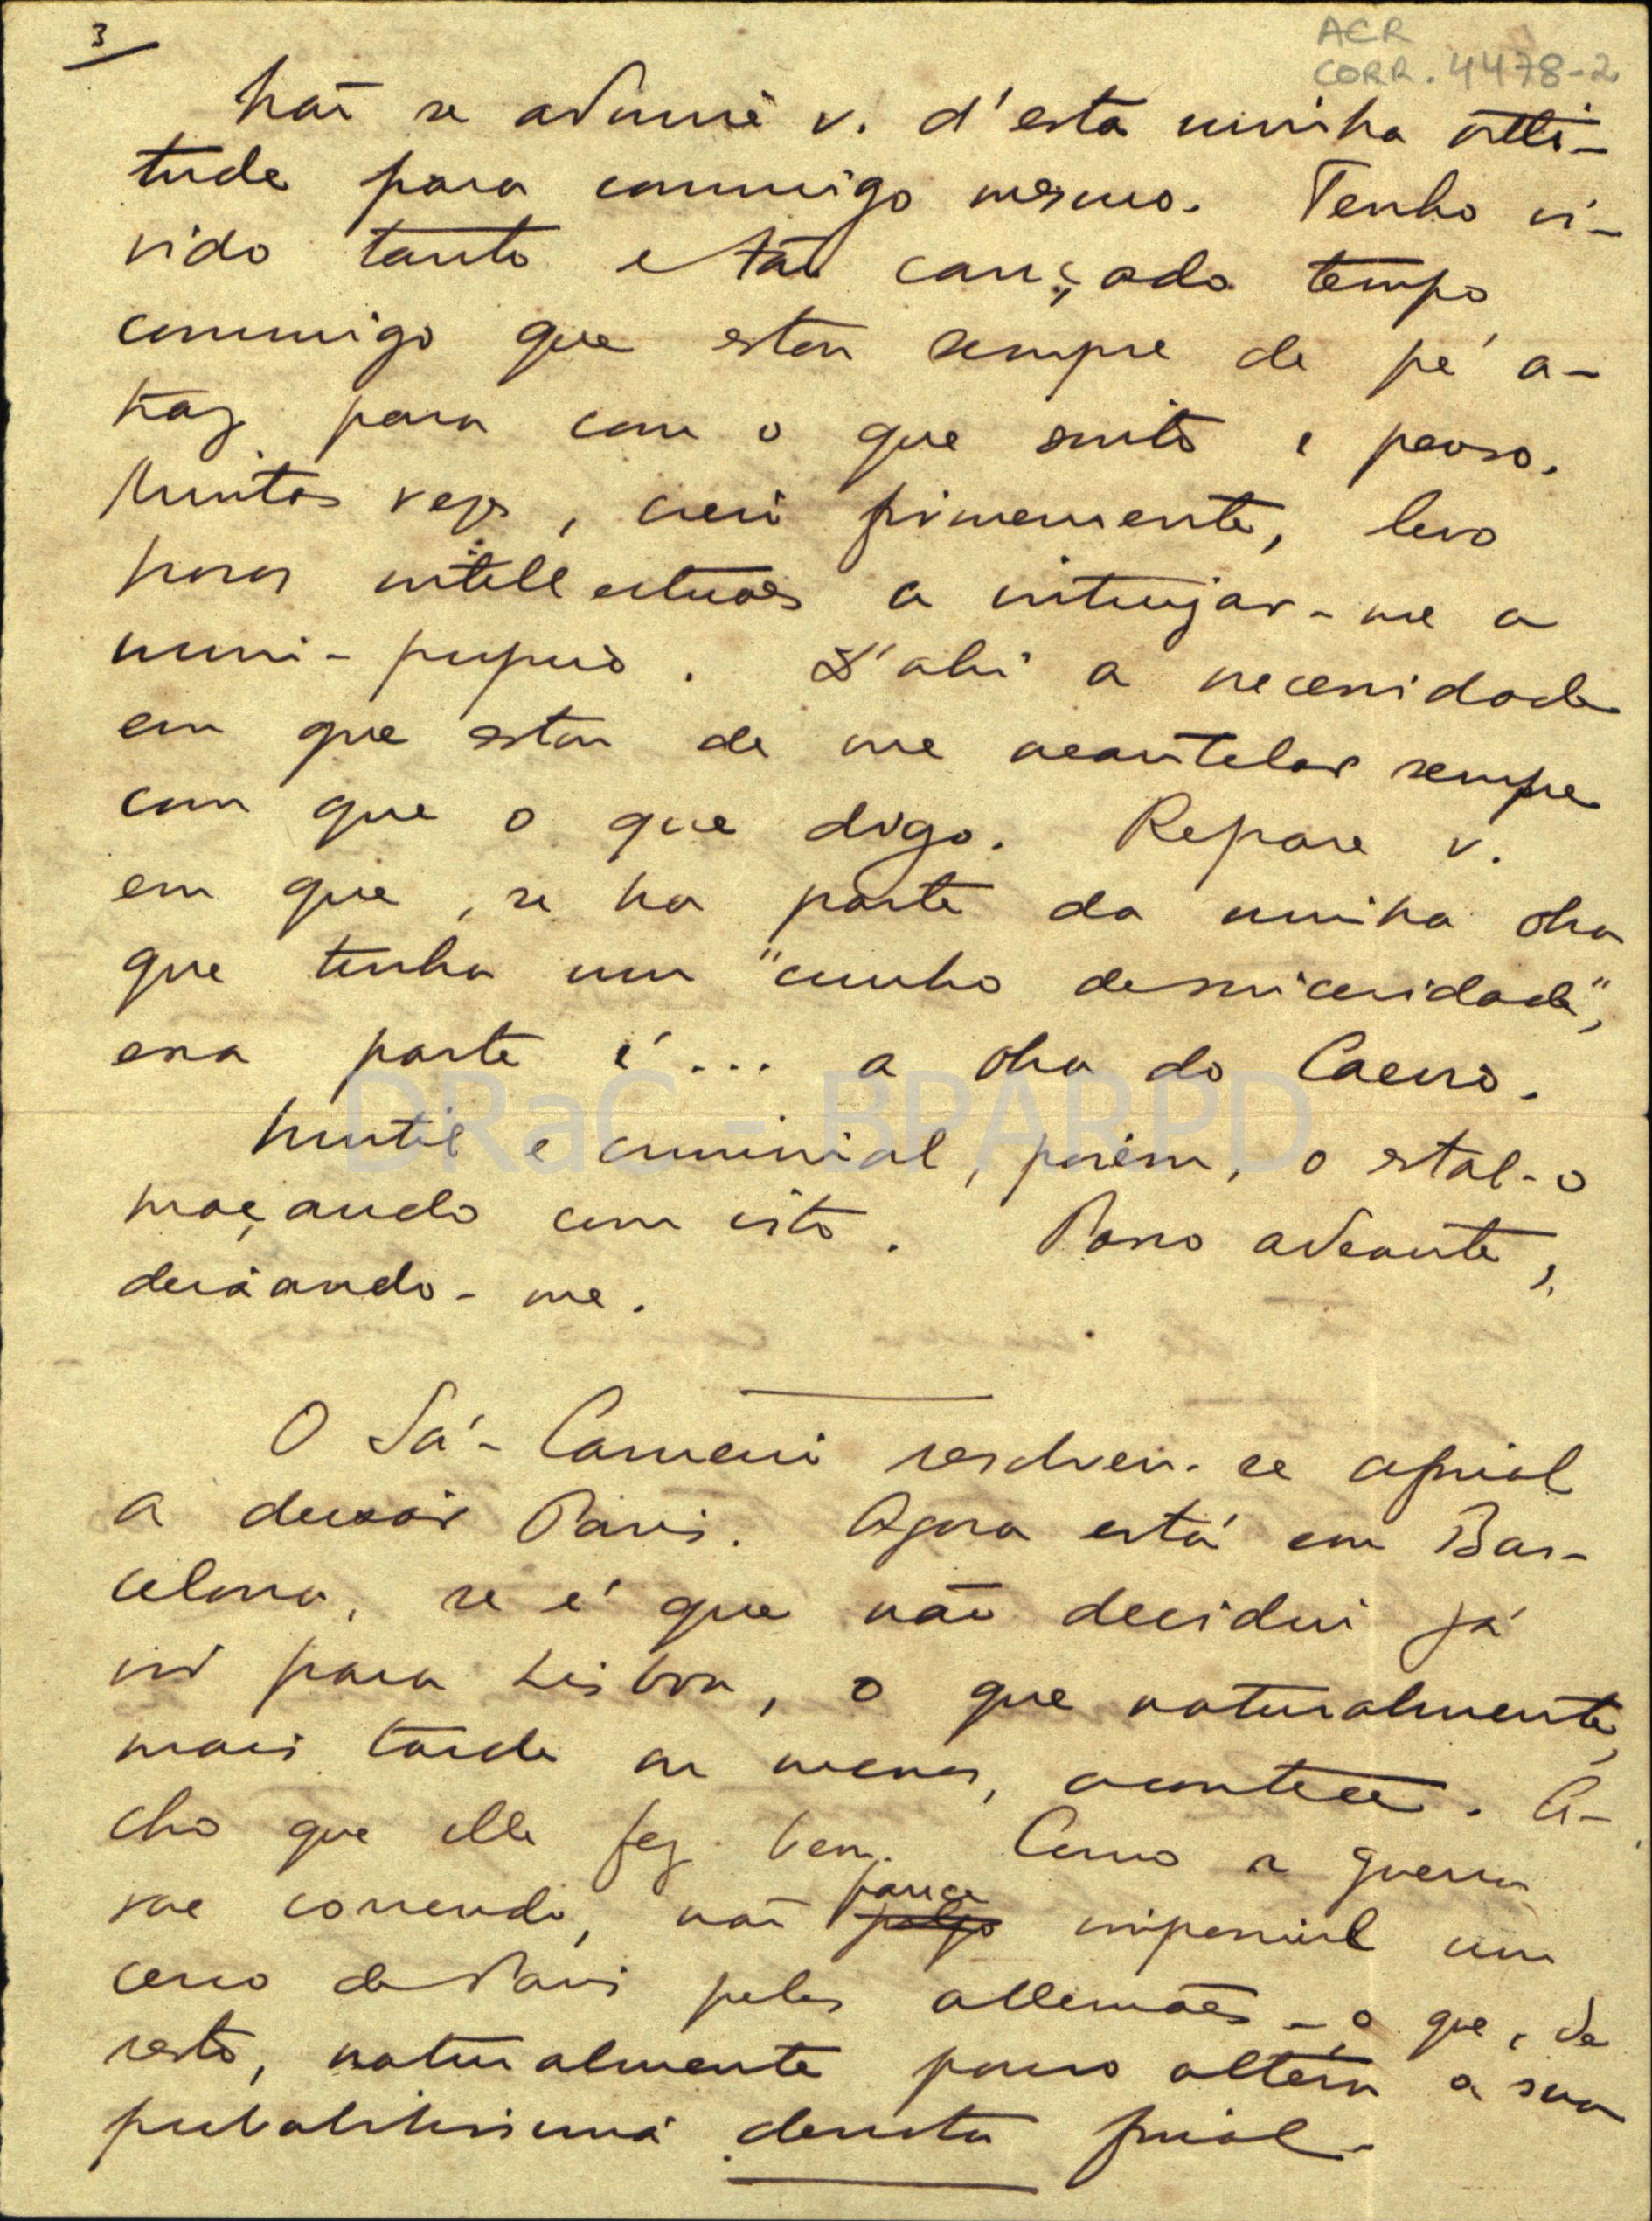 3
ACR
CORR. 4478-2
Não se admire v. d'esta minha atti-
tude para commigo mesmo. Tenho vi-
vido tanto e tão cançado tempo
commigo que estou sempre de pé a-
traz para com o que sinto e penso.
Muitas vezes, creio firmemente, levo
horas intellectuaes a intrujar-me a
mim-proprio. D'ahi a necessidade
em que estou de me acautelar sempre
com que o que digo. Repare v.
em que, se ha parte da minha obra
que tenha um "cunho de sinceridade",
essa parte é... a obra do Caeiro.
Inutil e criminal, porém, o estal-o
maçando com isto. Passo adeante,
deixando-me.
O Sá-Carneiro resolveu-se afinal
a deixar Paris. Agora está em Bar-
celona, se é que não decidiu já
vir para Lisboa, o que naturalmente,
mais tarde ou menos, acontece. A-
cho que elle fez bem. Como a guerra
vae correndo, não parece
julgo impossivel um
cerco de Paris pelos allemães - o que, de
resto, naturalmente pouco altera a sua
probabilissima derrota final.
DRaC - BPARPD